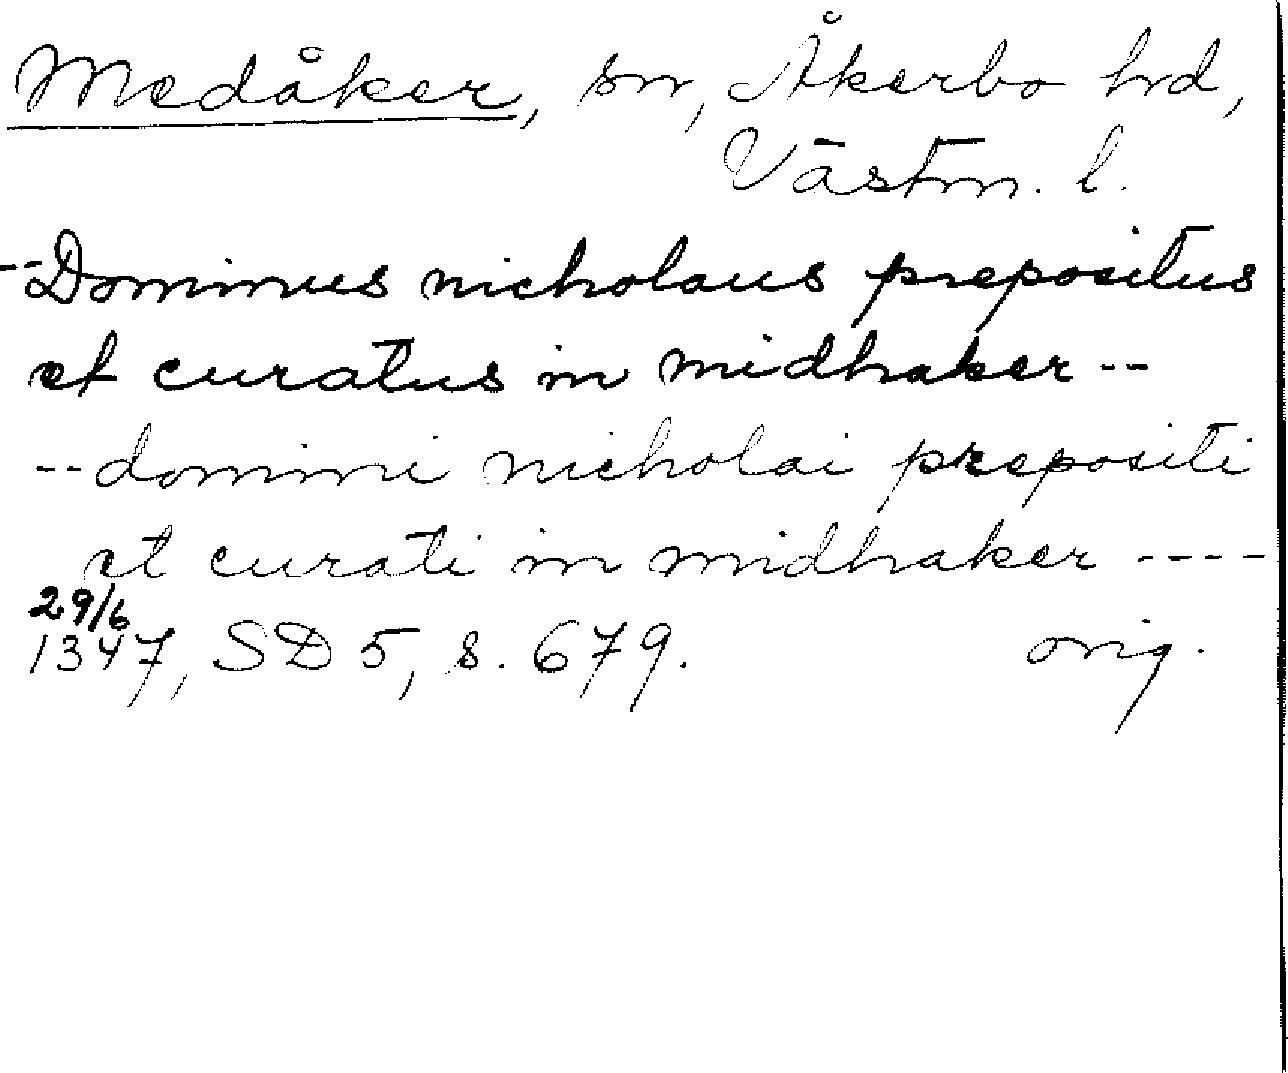 Medåker, sn, Åkerbo hd,
Västm. l.
--Dominus nicholaus prepositus
et curatus in midhaker--
--domini nicholai prepositi
et curati in midhaker----
29/6
1347, SD 5, s. 679. orig.